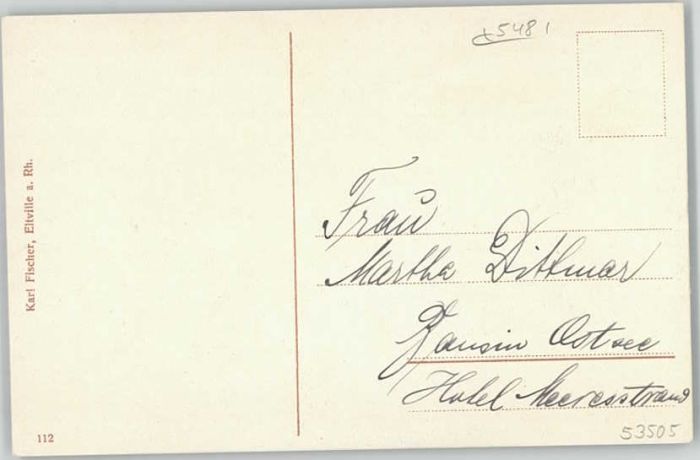 5481
Karl Fischer, Eltville a. Rh.
Frau
Martha Dittmar
Bansin Ostsee
Hotel Meeresstrand
112
53505